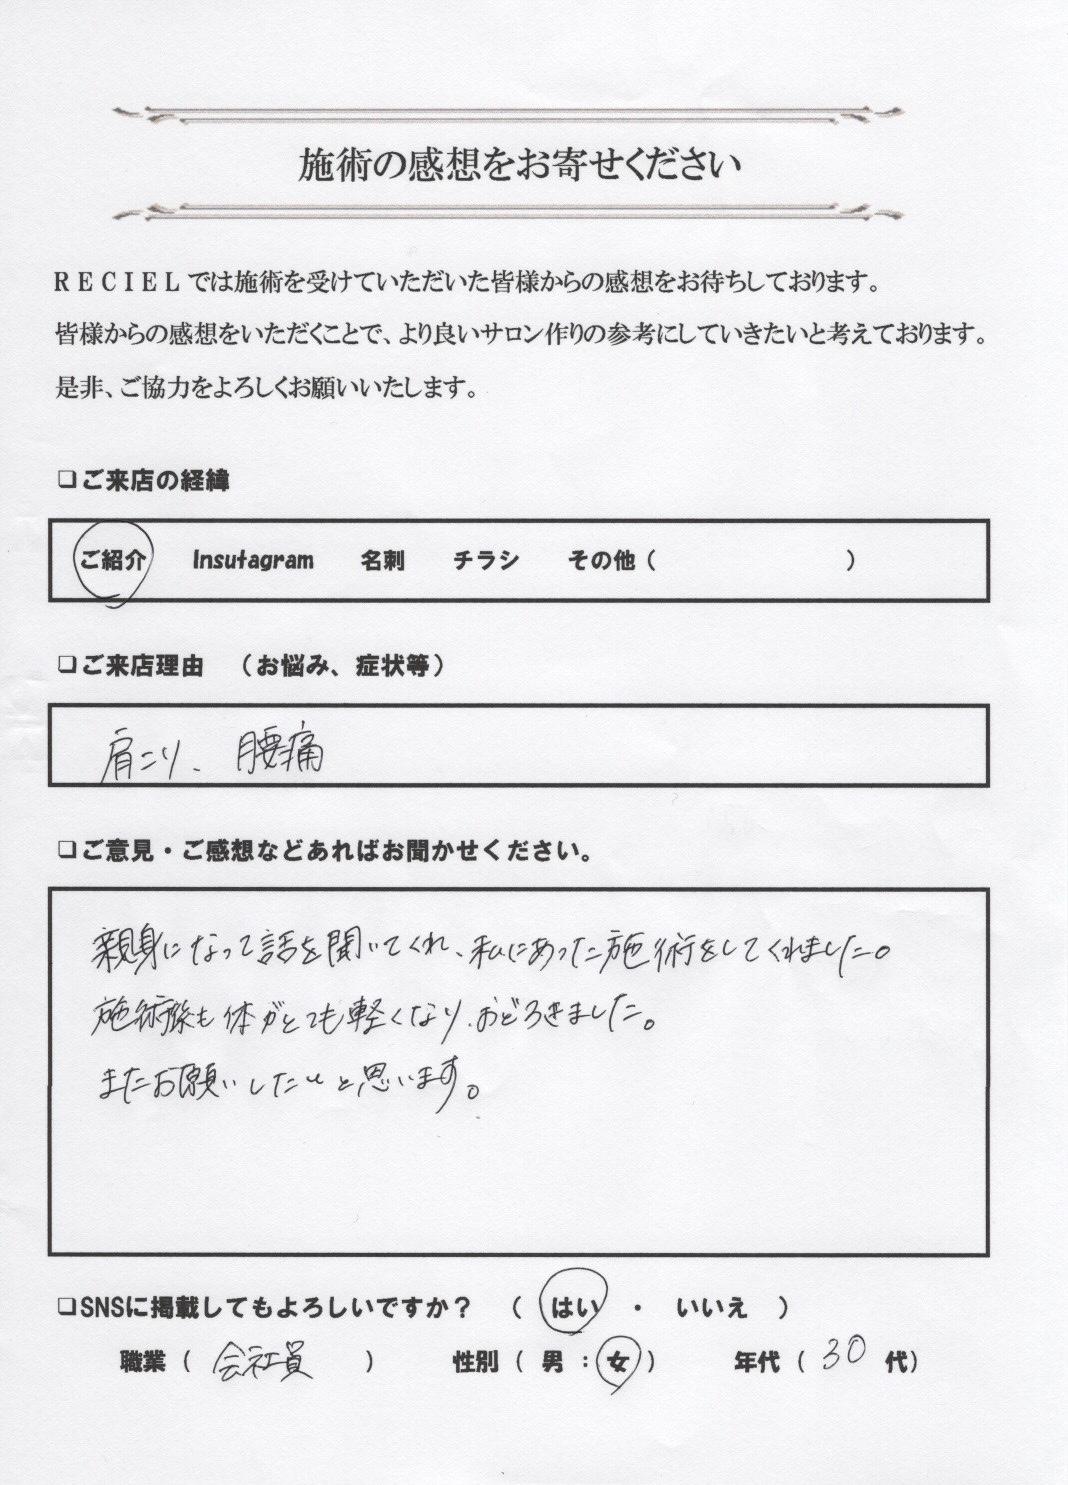 施術の感想をお寄せください
ＲＥＣＩＥＬでは施術を受けていただいた皆様からの感想をお待ちしております。
皆様からの感想をいただくことで、より良いサロン作りの参考にしていきたいと考えております。
是非、ご協力をよろしくお願いいたします。
❏ご来店の経緯
ご紹介　Insutagram　名刺　チラシ　その他（　　　）
❏ご来店理由　（お悩み、症状等）
肩こり、腰痛
❏ご意見・ご感想などあればお聞かせください。
親身になって話を聞いてくれ、私にあった施術をしてくれました。
施術後も体がとても軽くなり、おどろきました。
またお願いしたいと思います。
❏SNSに掲載してもよろしいですか？　（　はい　・　いいえ　）
職業（　会社員　）　性別（　男　：　女　）　年代（　30　代）